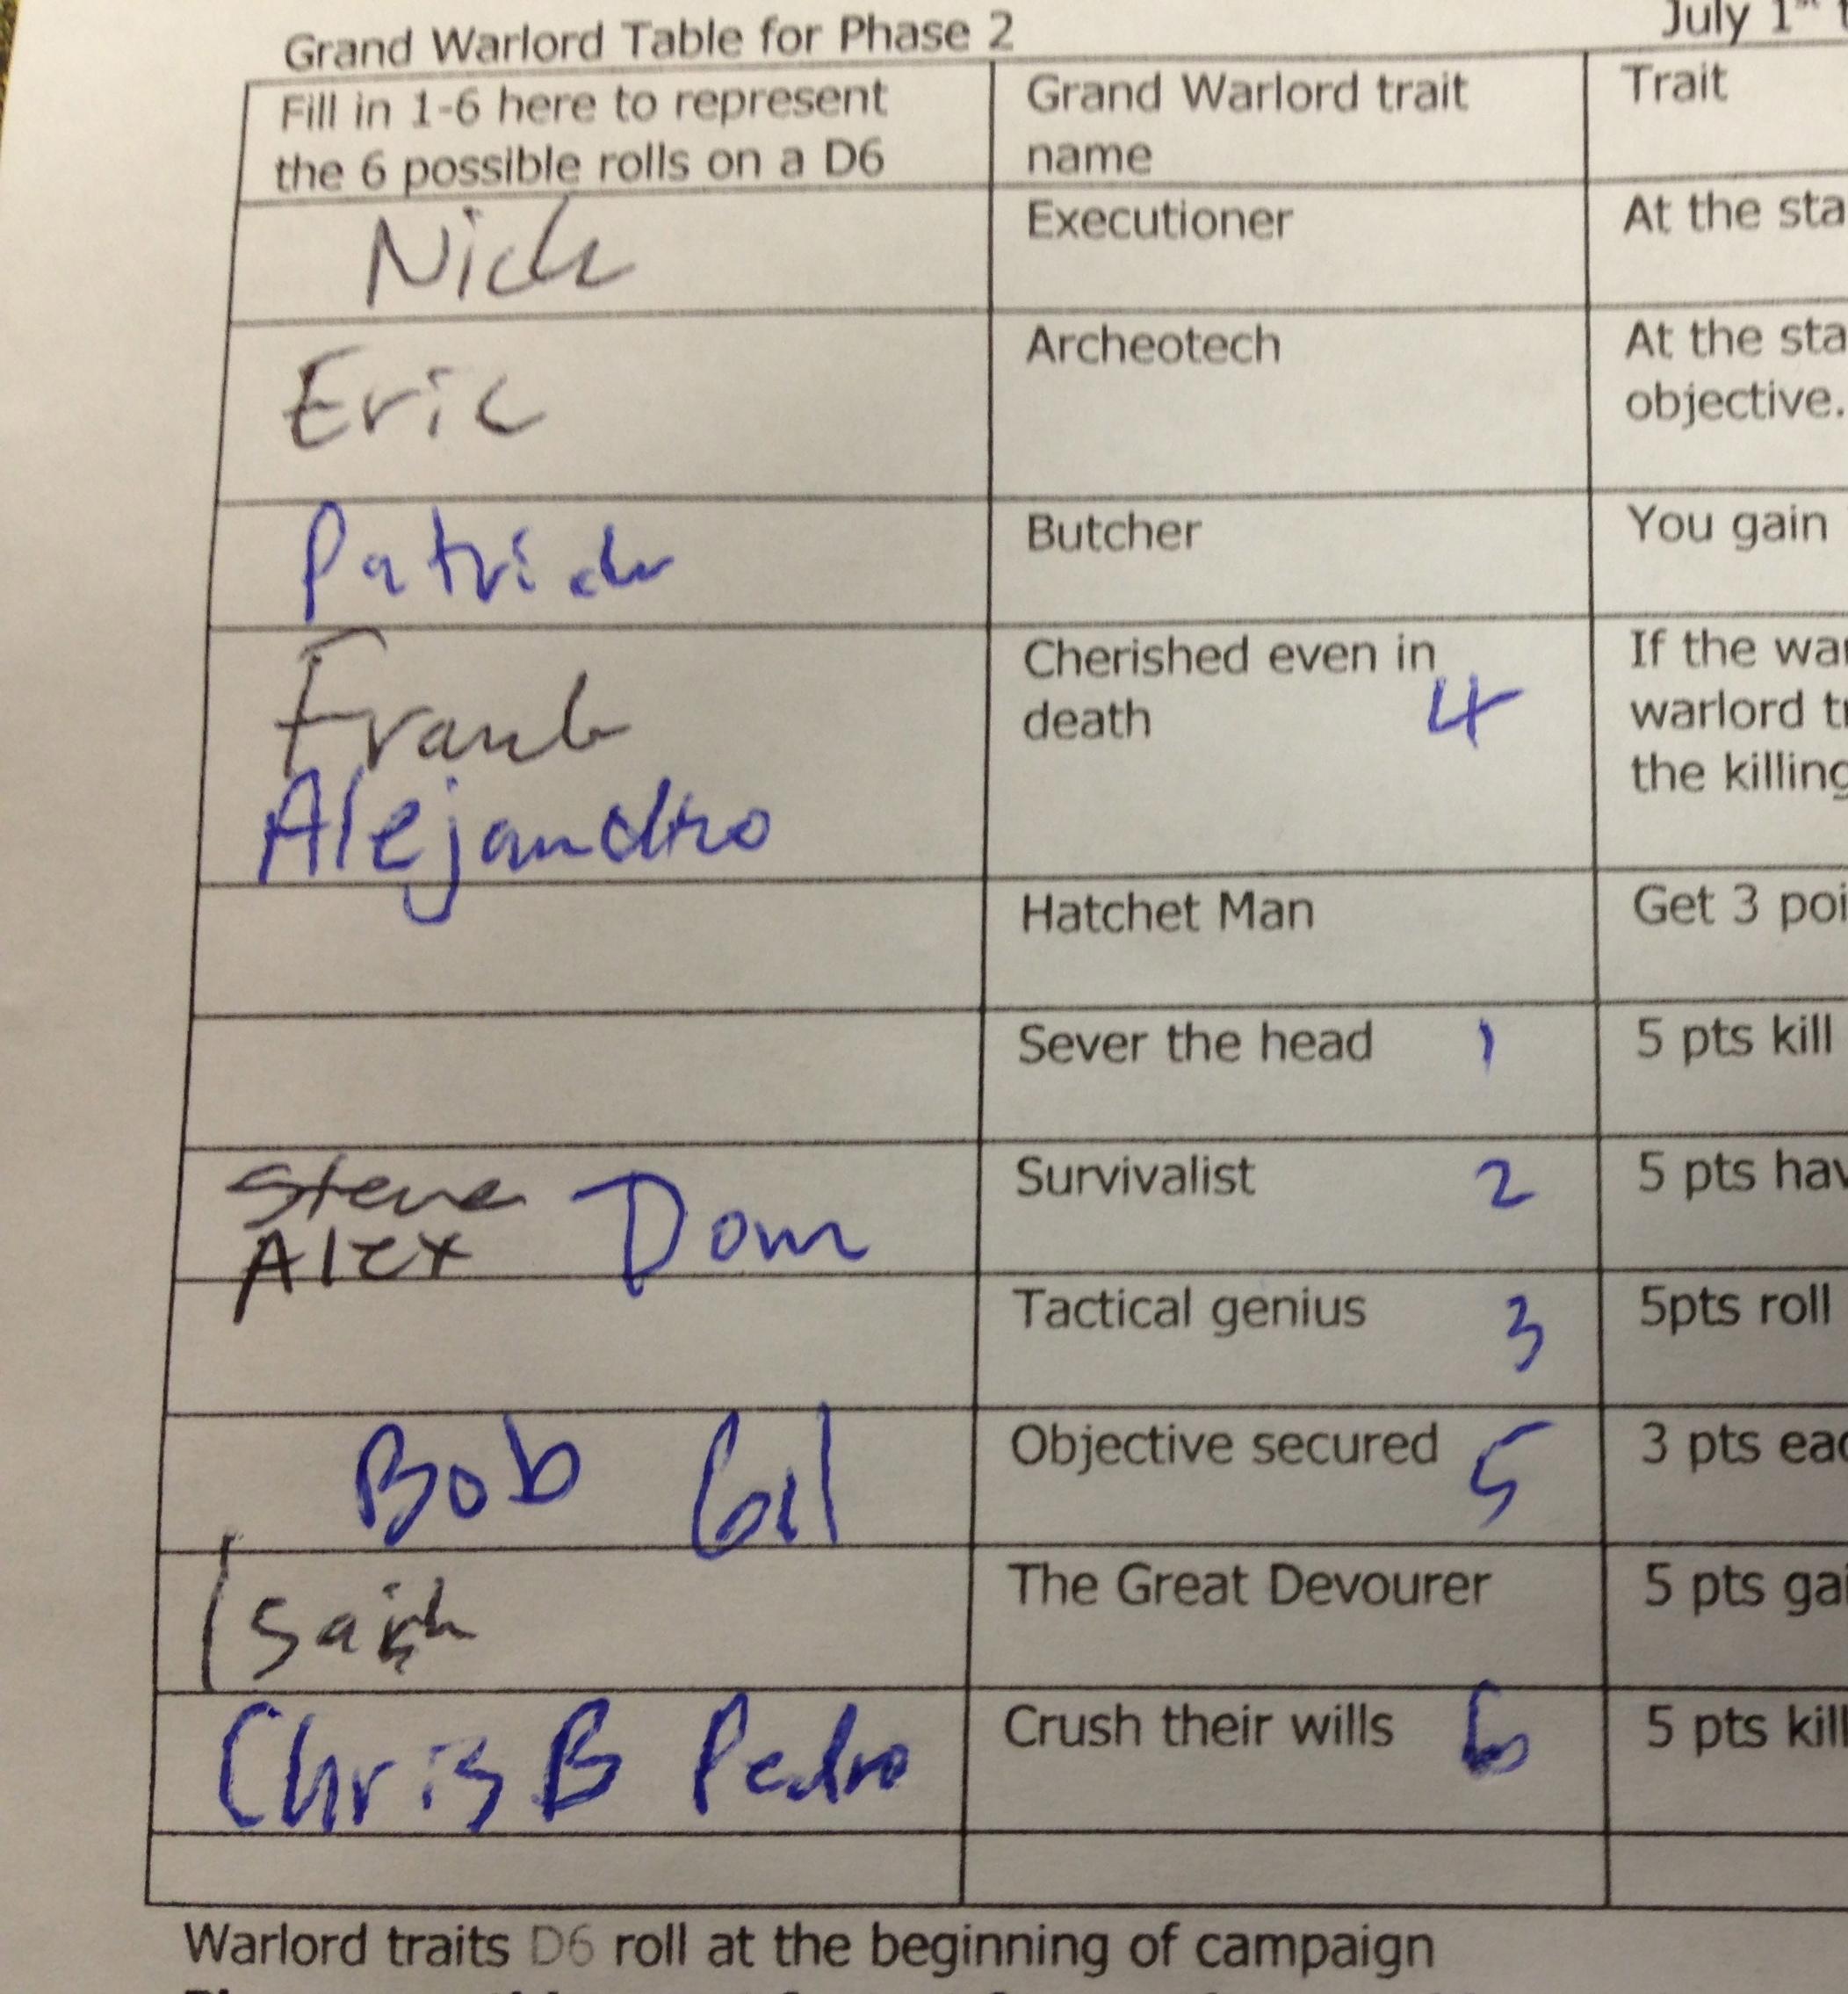 Grand Warlord Table for Phase 2
July 1st
Fill in 1-6 here to represent
the 6 possible rolls on a D6
Grand Warlord trait
name
Trait
Nick
Executioner
At the sta
Eric
Archeotech
At the sta
objective.
Patrick
Butcher
You gain
Frank
Alejandro
Cherished even in
death 4
If the war
warlord tr
the killing
Hatchet Man
Get 3 poi
Sever the head 1
5 pts kill
Steve
Alex Dom
Survivalist 2
5 pts hav
Tactical genius 3
5pts roll
Bob Gil
Objective secured 5
3 pts eac
The Great Devourer
5 pts gai
Chris B Pedro
Crush their wills 6
5 pts kill
Warlord traits D6 roll at the beginning of campaign